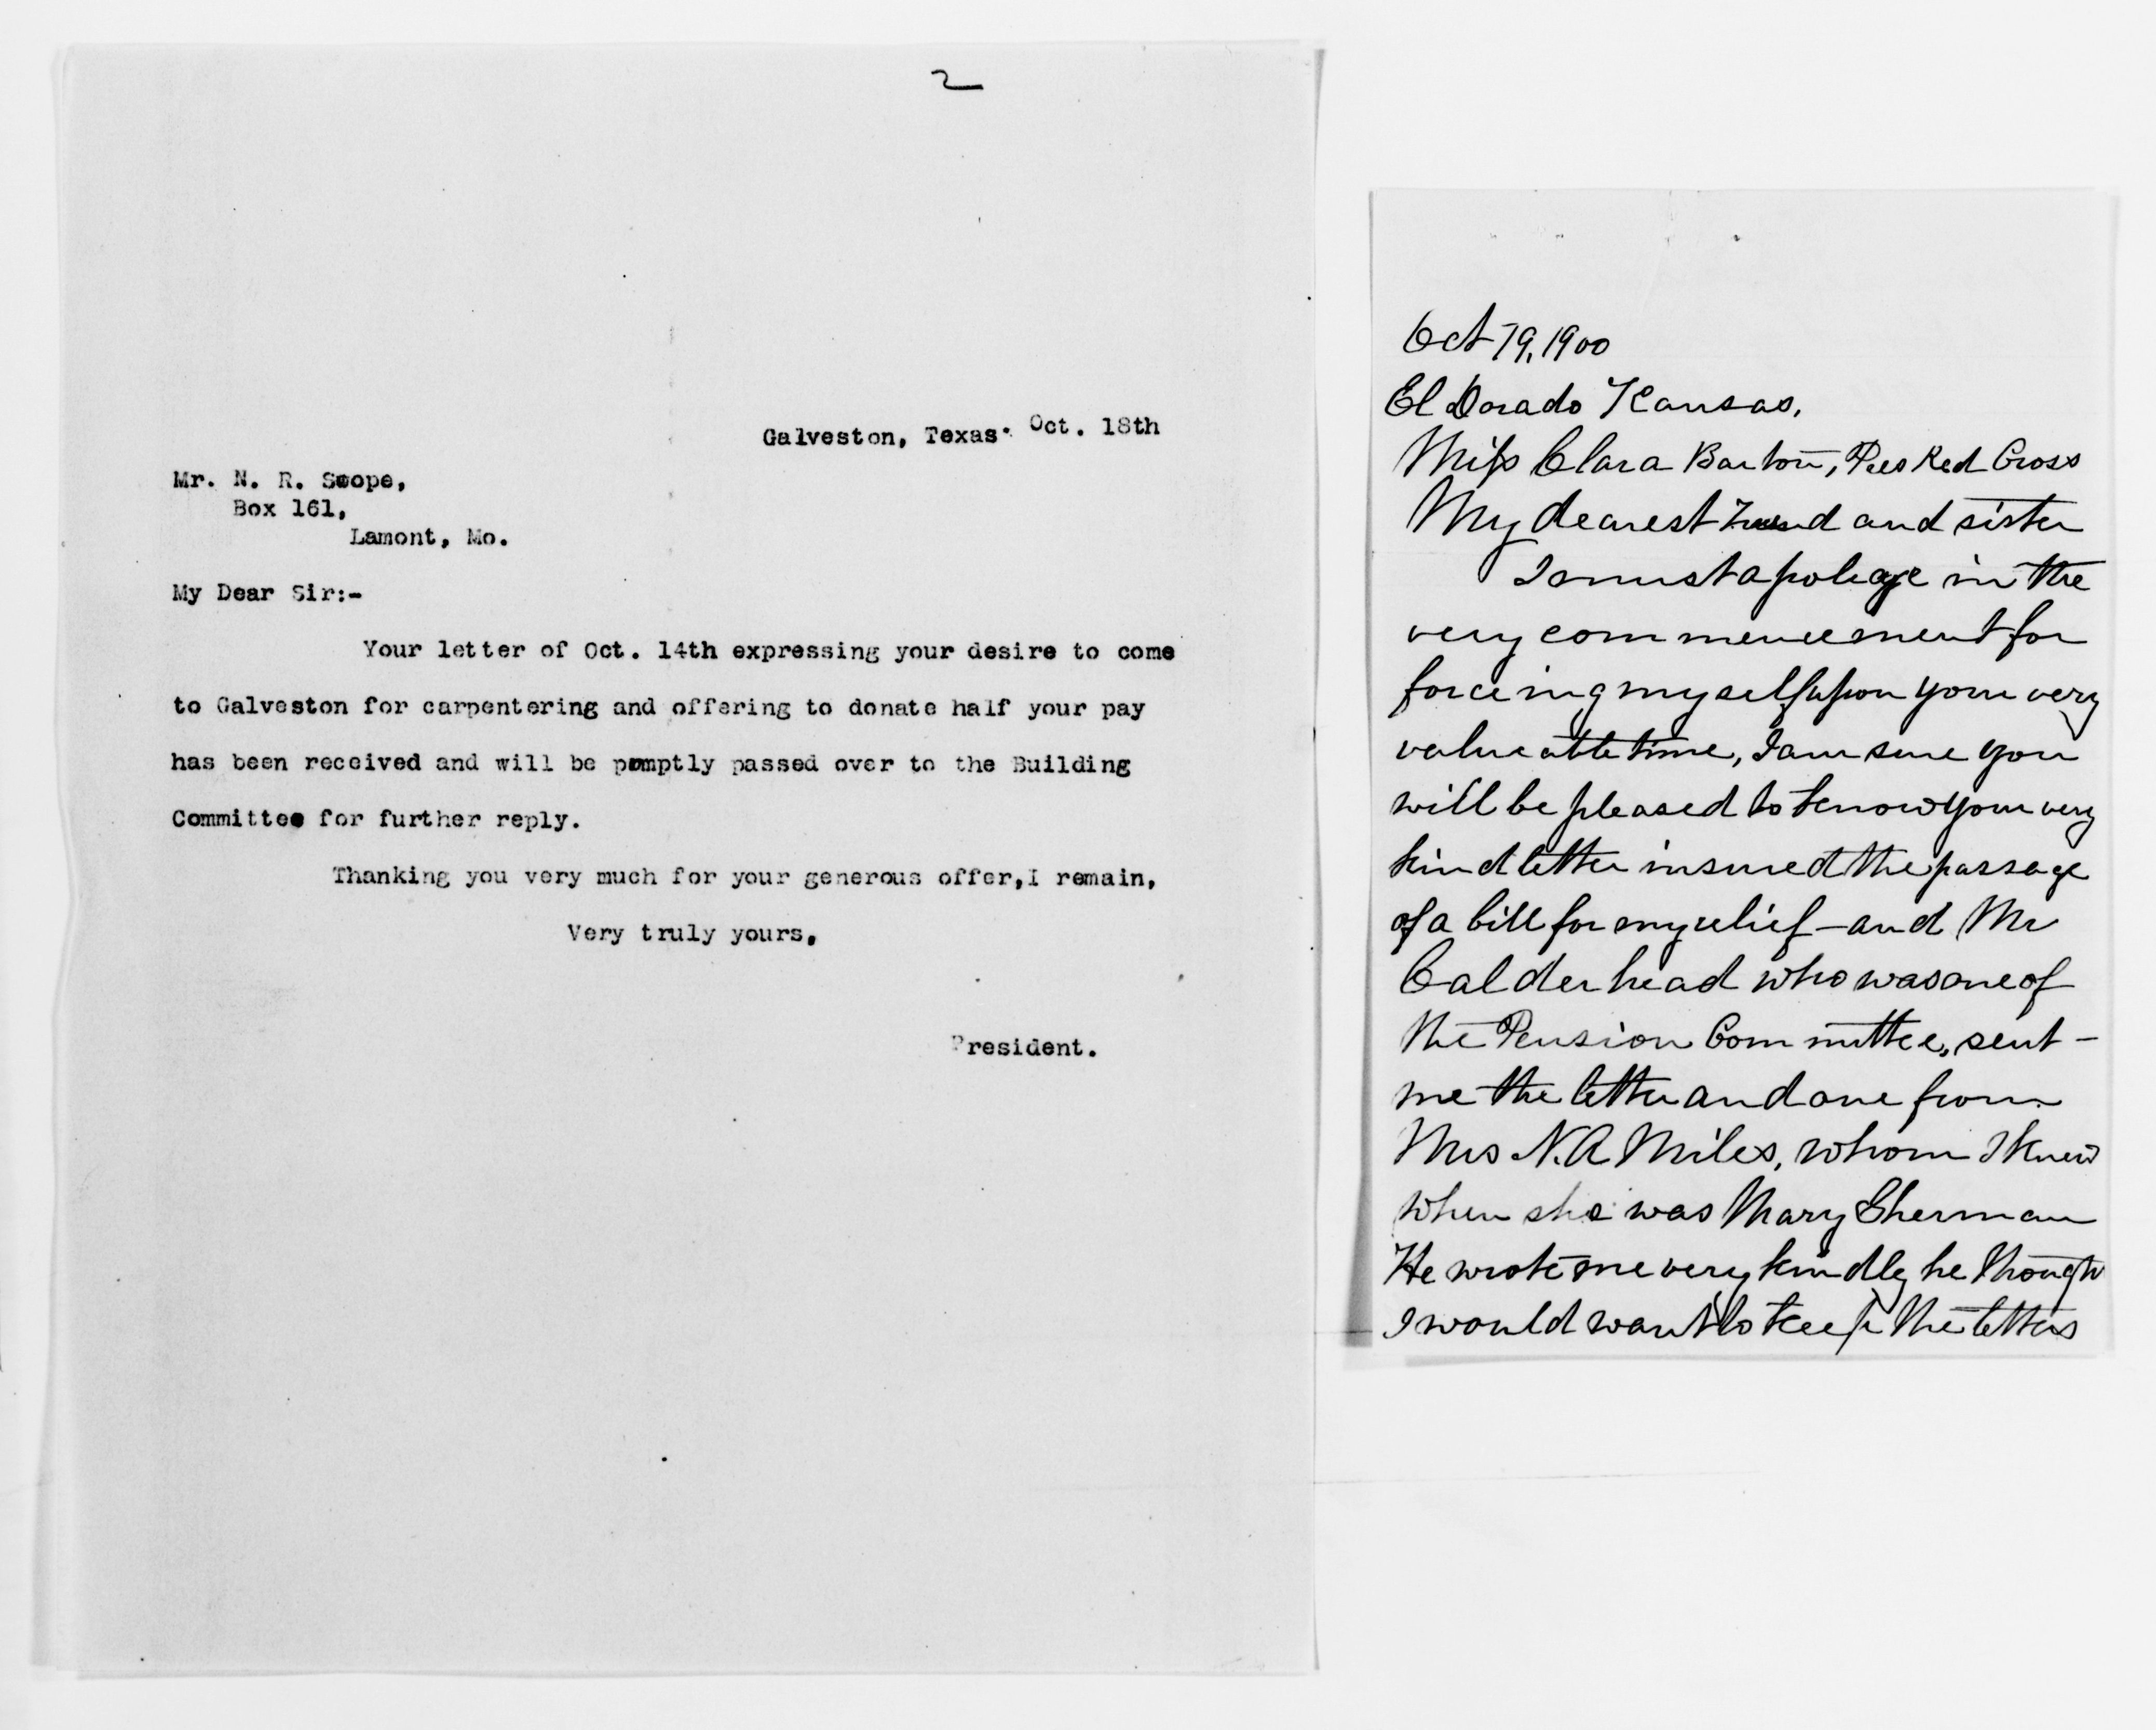 2
Galveston, Texas. Oct. 18th
Mr. N. R. Swope,
Box 161,
Lamont, Mo.
My Dear Sir:-
Your letter of Oct. 14th expressing your desire to come
to Galveston for carpentering and offering to donate half your pay
has been received and will be pomptly passed over to the Building
Committee for further reply.
Thanking you very much for your generous offer,I remain,
Very truly yours,
President.
Oct 19, 1900
El Dorado Kansas,
Miss Clara Barton, Pres Red Cross
My dearest friend and sister
I must apologe in the
very commencement for
forceing myself upon your very
valueable time, I am sure you
will be pleased to know your very
kind letter insured the passage
of a bill for my relief - and Mr
Calderhead who was one of
the Pension Committee, sent -
me the letter and one from
Mrs N. A Miles, whom I knew
when she was Mary Sherman
He wrote me very kindly he though
I would want to keep the letters